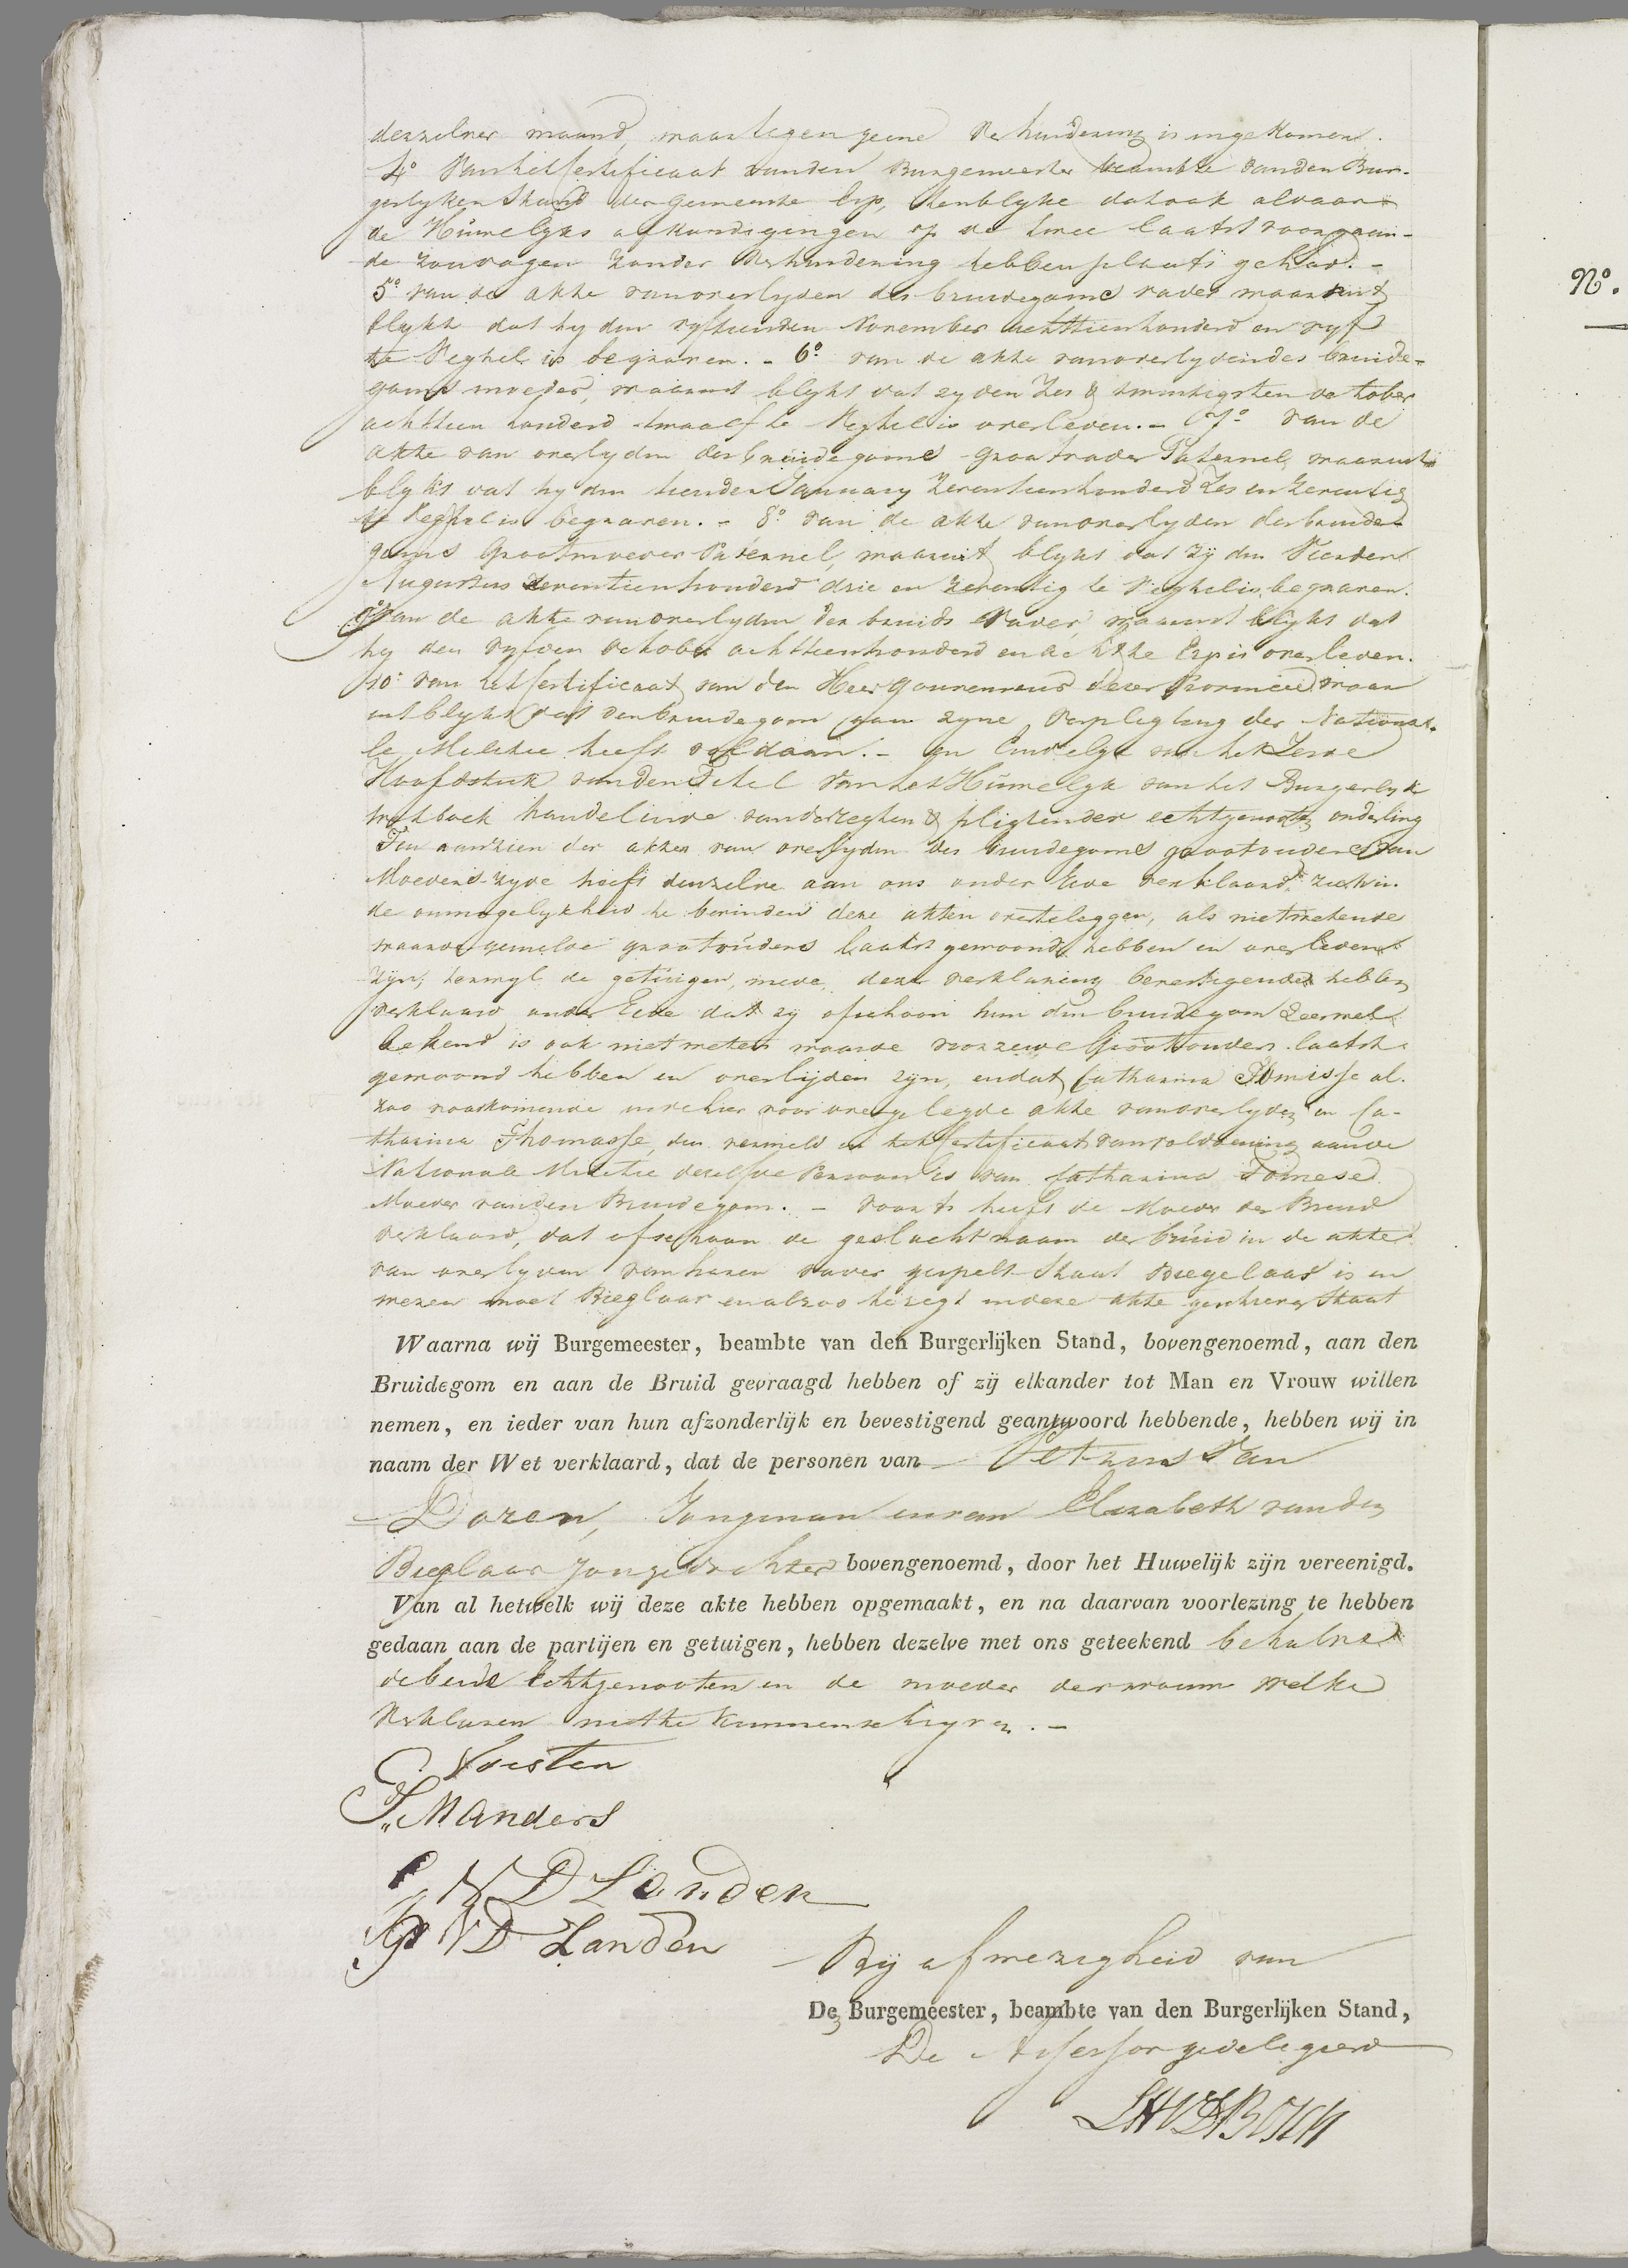 derzelver maand, waartegen geene verhindering is ingekomen.
4° van het certificaat van den Burgemeester beambte van den Bur-
gerlyken Stand der Gemeente Erp, ten blyke dat ook aldaar
de Huwelyks afkondigingen op de twee laatst voorgaan-
de zondagen zonder verhindering hebben plaats gehad. -
5° van de akte van overlyden des bruidegoms vader waaruit
blykt dat hy den vyftienden November achttienhonderd en vyf
te Veghel is begraven. - 6° van de akte van overlyden des bruide-
goms moeder, waaruit blykt dat zy den zes & twintigsten october
achttien honderd twaalf te Veghel is overleden. - 7° van de
akte van overlyden des bruidegoms grootvader Paternel, waaruit
blykt dat hy den tienden January zeventienhonderd zes en zeventig
te Veghel is begraven. - 8° van de akte van overlyden des bruide-
goms Grootmoeder Paternel, waaruit blykt dat zij den Vierden
Augustus zeventienhonderd drie en zeventig te Veghel is begraven.
9° van de akte van overlyden der bruids vader, waaruit blykt dat
hy den vyfden october achttienhonderd en acht te Erp is overleden.
10° van het certificaat van den Heer Gouverneur dezer Provincie waar
uit blykt dat den bruidegom aan zyne verpligting der Nationa-
le Militie heeft voldaan. - en Eindelyk van het Zesde
Hoofdstuk van den Titel van het Huwelyk van het Burgerlyk
wetboek handelende van de regten & pligten der echtgenoten onderling
Ten aanzien der akten van overlyden des bruidegoms grootouders van
Moeders zyde heeft denzelve aan ons onder Eede verklaard zich in
de onmogelykheid te bevinden deze akten overteleggen, als niet wetende
waar de gemelde grootouders laatst gewoond hebben en overleden
zyn, terwyl de getuigen, mede, deze verklaring bevestigende hebben
verklaard onder Eede dat zy ofschoon hun den bruidegom zeer wel
bekend is ook niet weten waar de voorzeide Grootouders laatst
gewoond hebben en overleden zyn, en dat Catharina Tomisse al-
zoo voorkomende in de hier voor overgelegde akte van overlyden en Ca-
tharina Thomasse, den vermeld in het certificaat van voldoening aan de
Nationale Militie dezelfde Persoon is van Catharina Tomese
Moeder van den Bruidegom. - voorts heeft de Moeder der Bruid
verklaard, dat ofschoon de geslachtnaam der bruid in de akte
van overlyden van haren vader gespelt staat Biegelaar is en
wezen moet Bieglaar en alzoo te regt in deze akte geschreven staat
Waarna wij Burgemeester, beambte van den Burgerlijken Stand, bovengenoemd, aan den
Bruidegom en aan de Bruid gevraagd hebben of zij elkander tot Man en Vrouw willen
nemen, en ieder van hun afzonderlijk en bevestigend geantwoord hebbende, hebben wij in
naam der Wet verklaard, dat de personen van Petrus van
Doren, Jongman en van Elizabeth van den
Bieglaar jonge dochter bovengenoemd, door het Huwelijk zijn vereenigd.
Van al hetwelk wij deze akte hebben opgemaakt, en na daarvan voorlezing te hebben
gedaan aan de partijen en getuigen, hebben dezelve met ons geteekend behalve
de beide Echtgenooten en de moeder der vrouw welke
verklaren niet te kunnen schryven. -
C. Voesten
J. Manders
V D Landen
V D Landen
Bij afwezigheid van
De Burgemeester, beambte van den Burgerlijken Stand,
De Assessor gedelegeerd
N°.